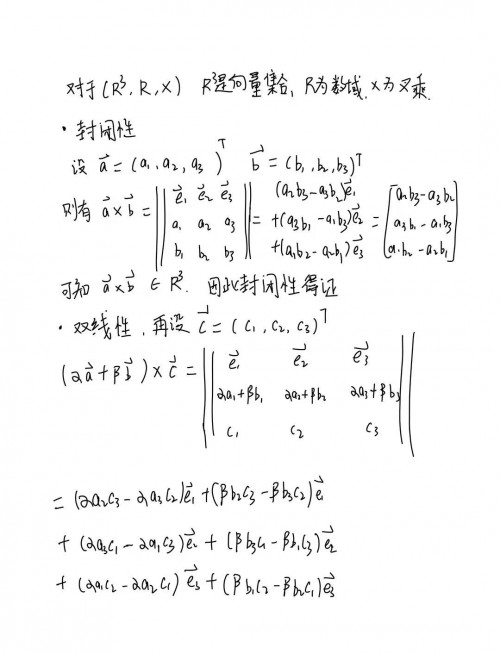 对于(R³, R, ×) R³是向量集合, R为数域, ×为叉乘.
· 封闭性
设 a⃗ = (a₁, a₂, a₃)ᵀ b⃗ = (b₁, b₂, b₃)ᵀ
则有 a⃗ × b⃗ = || e⃗₁ e⃗₂ e⃗₃ ; a₁ a₂ a₃ ; b₁ b₂ b₃ || = (a₂b₃-a₃b₂)e⃗₁ +(a₃b₁-a₁b₃)e⃗₂ +(a₁b₂-a₂b₁)e⃗₃ = [a₂b₃-a₃b₂ ; a₃b₁-a₁b₃ ; a₁b₂-a₂b₁]
可知 a⃗ × b⃗ ∈ R³. 因此封闭性得证
· 双线性, 再设 c⃗ = (c₁, c₂, c₃)ᵀ
(αa⃗ + βb⃗) × c⃗ = || e⃗₁ e⃗₂ e⃗₃ ; αa₁+βb₁ αa₂+βb₂ αa₃+βb₃ ; c₁ c₂ c₃ ||
= (αa₂c₃ - αa₃c₂)e⃗₁ + (βb₂c₃ - βb₃c₂)e⃗
+ (αa₃c₁ - αa₁c₃)e⃗₂ + (βb₃c₁ - βb₁c₃)e⃗₂
+ (αa₁c₂ - αa₂c₁)e⃗₃ + (βb₁c₂ - βb₂c₁)e⃗₃